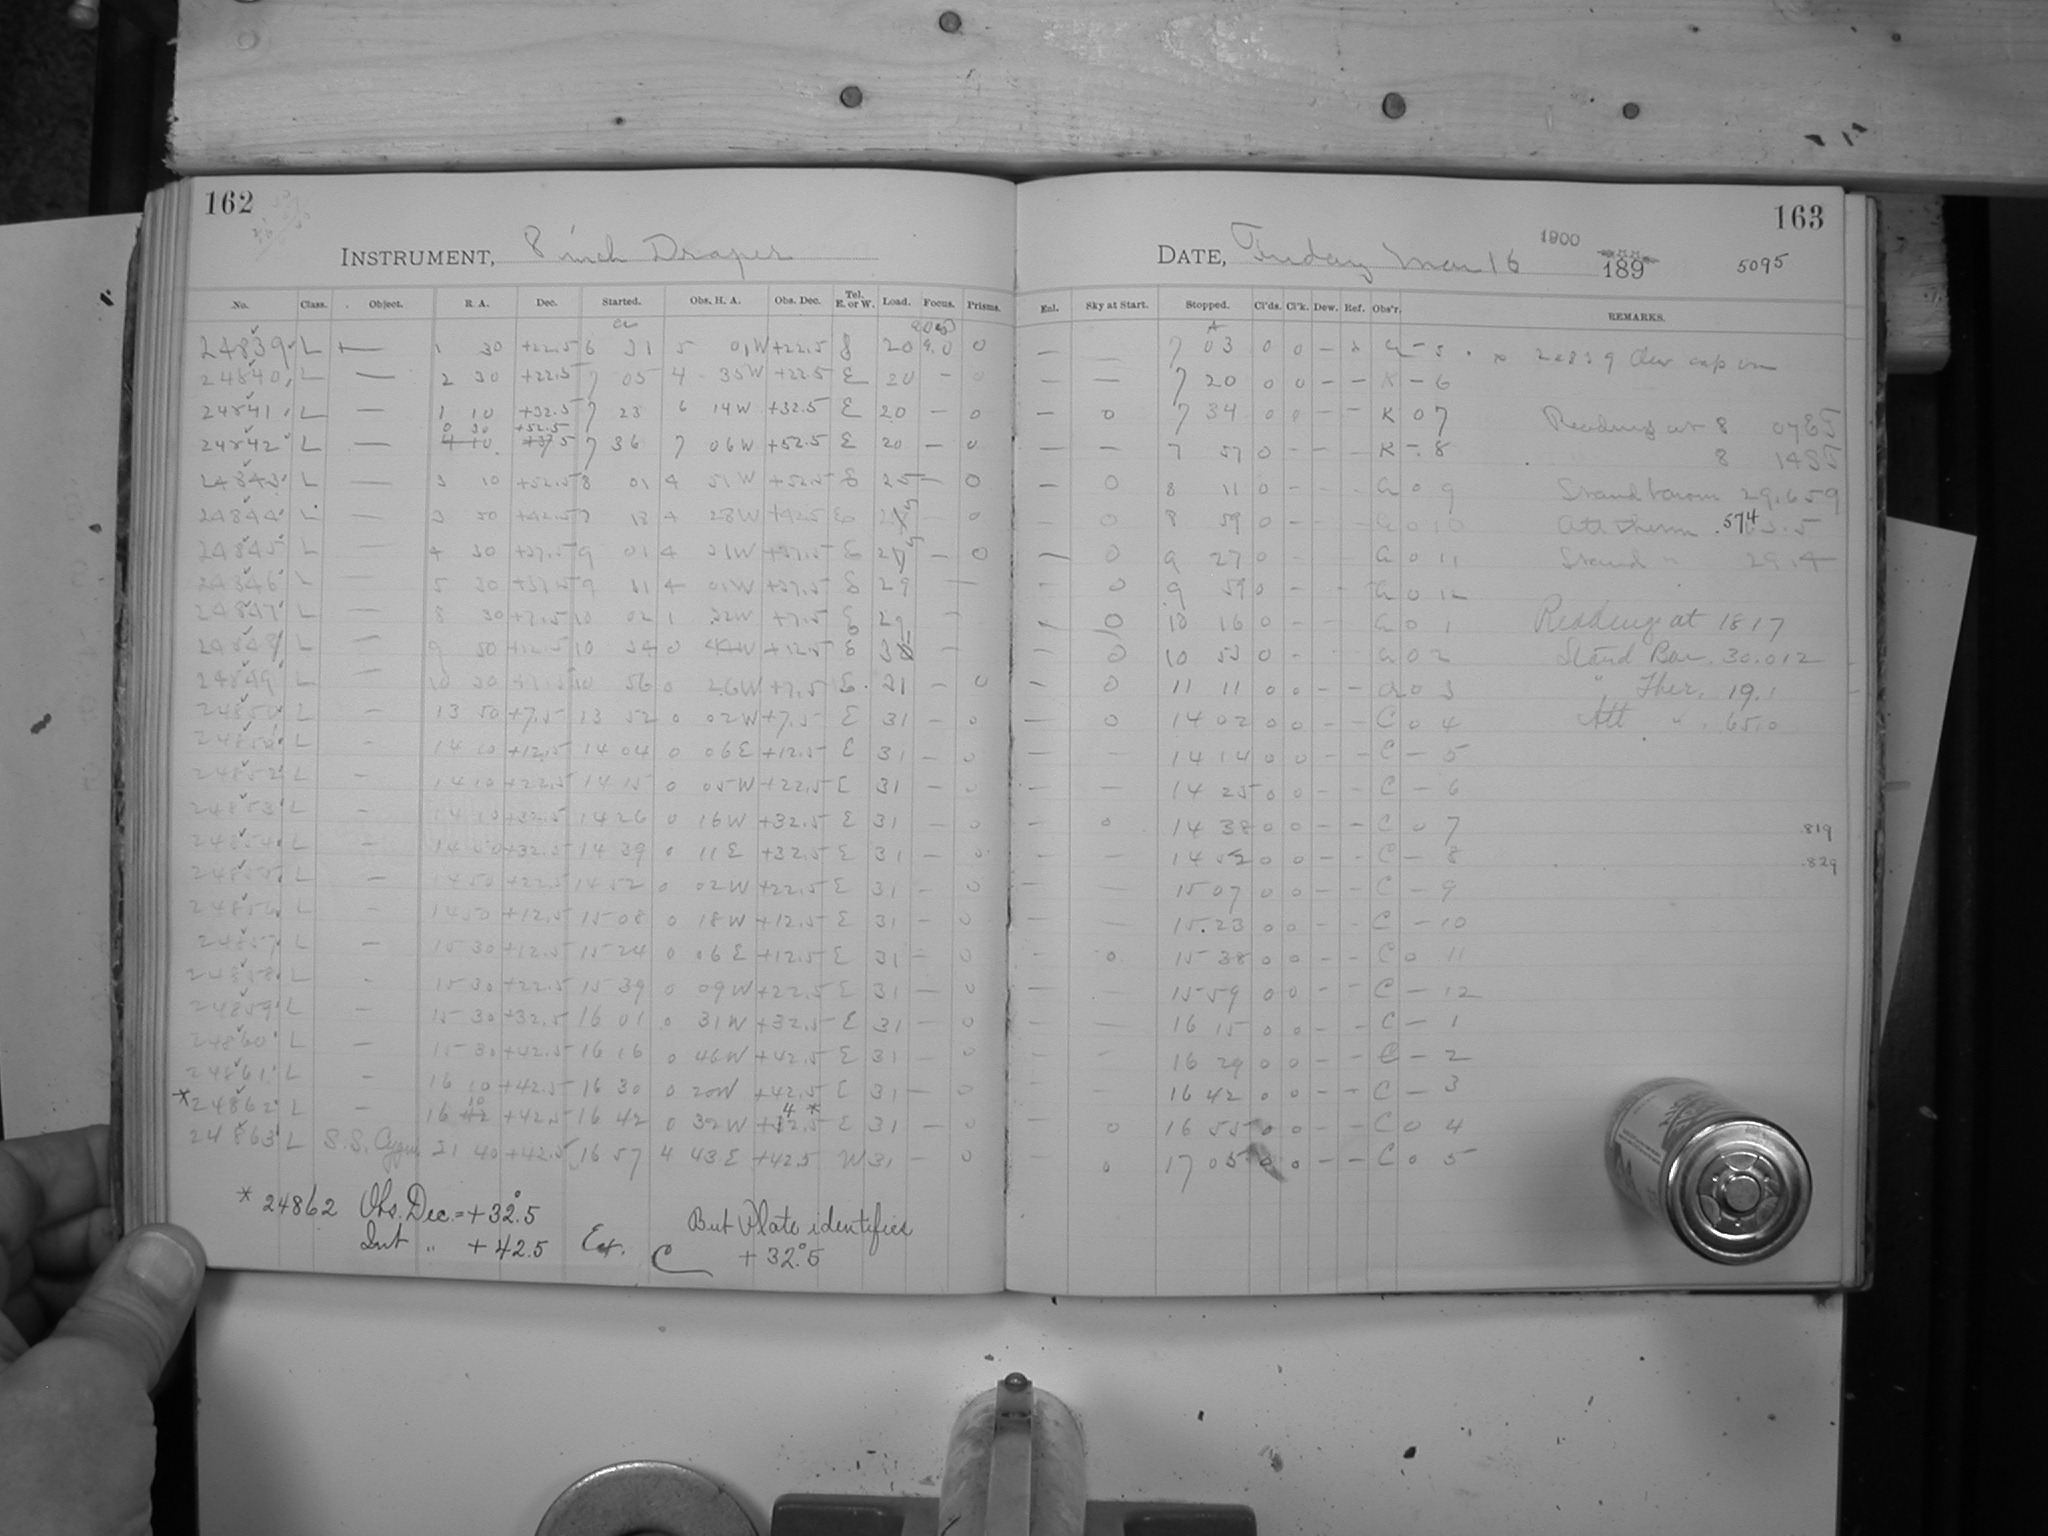 162
INSTRUMENT, 8 inch Draper
No. Class. Object. R. A. Dec. Started. Obs. H. A. Obs. Dec. Tel. E. or W. Load. Focus. Prisms.
24839 L — 1 30 +22.5 6 51 5 01W +22.5 20 9.0 0
24840 L — 2 30 +22.5 7 05 4 35W +22.5 E 20 – 0
24841 L — 1 10 +32.5 7 23 6 14W +32.5 E 20 – 0
0 30 +52.5
24842 L — 7 36 7 06W +52.5 E 20 – 0
24843 L — 3 10 +52.5 8 01 4 51W +52.5 E 25 – 0
24844 L — 3 50 +42.5 4 28W +42.5 – 0
24845 L — 4 30 +37.5 9 01 4 31W +37.5 E – 0
24846 L — 5 30 +37.5 9 31 4 01W +37.5 E 29
24847 L — 8 30 +7.5 10 02 1 32W +7.5 E 29
24848 L — 9 50 +12.5 10 54 0 44W +12.5 E
24849 L — 10 30 +7.5 10 56 0 26W +7.5 E 31 – 0
24850 L – 13 50 +7.5 13 52 0 02W +7.5 E 31 – 0
24851 L – 14 10 +12.5 14 04 0 06E +12.5 E 31 – 0
24852 L – 14 10 +22.5 14 15 0 05W +22.5 E 31 – 0
24853 L – 14 10 +32.5 14 26 0 16W +32.5 E 31 – 0
24854 L – 14 50 +32.5 14 39 0 11E +32.5 E 31 – 0
24855 L – 14 50 +22.5 14 52 0 02W +22.5 E 31 – 0
24856 L – 14 50 +12.5 15 08 0 18W +12.5 E 31 – 0
24857 L – 15 30 +12.5 15 24 0 06E +12.5 E 31 – 0
24858 L – 15 30 +22.5 15 39 0 09W +22.5 E 31 – 0
24859 L – 15 30 +32.5 16 01 0 31W +32.5 E 31 – 0
24860 L – 15 30 +42.5 16 16 0 46W +42.5 E 31 – 0
24861 L – 16 10 +42.5 16 30 0 20W +42.5 E 31 – 0
*24862 L – 16 10 +42.5 16 42 0 32W +42.5* E 31 – 0
24863 L S.S. Cygni 21 40 +42.5 16 57 4 43E +42.5 W 31 – 0
* 24862 Obs. Dec. = +32°.5 But Plate identifies
Int " +42.5 Ex. C +32°.5
163
DATE, Friday Mar 16 1900 189 5095
Enl. Sky at Start. Stopped. Cl'ds. Cl'k. Dew. Ref. Obs'r. REMARKS.
— — 7 03 0 0 – – 5 24839 Dew cap on
— — 7 20 0 0 – – K – 6
— 0 7 34 0 0 – – K 0 7 Reading at 8 07
— — 7 57 0 – – – K – 8 8 14
— 0 8 11 0 – – – 0 9 Stand barom 29.659
— 0 8 59 0 – – – 0 10 Att therm .574
— 0 9 27 0 – – – 0 11 Stand "
— 0 9 59 0 – – – 0 12
— 0 10 16 0 – – – 0 1 Reading at 18 17
— 0 10 53 0 – – – 0 2 Stand Bar. 30.012
— 0 11 11 0 0 – – 0 3 " Ther. 19.1
— 0 14 02 0 0 – – C 0 4 Att " 65.0
— — 14 14 0 0 – – C – 5
— — 14 25 0 0 – – C – 6
— 0 14 38 0 0 – – C 0 7 .819
— — 14 52 0 0 – – C – 8 .829
— — 15 07 0 0 – – C – 9
— — 15 23 0 0 – – C – 10
— 0 15 38 0 0 – – C 0 11
— — 15 59 0 0 – – C – 12
— — 16 15 0 0 – – C – 1
— — 16 29 0 0 – – C – 2
— — 16 42 0 0 – – C – 3
— 0 16 55 0 0 – – C 0 4
0 17 05 0 0 – – C 0 5